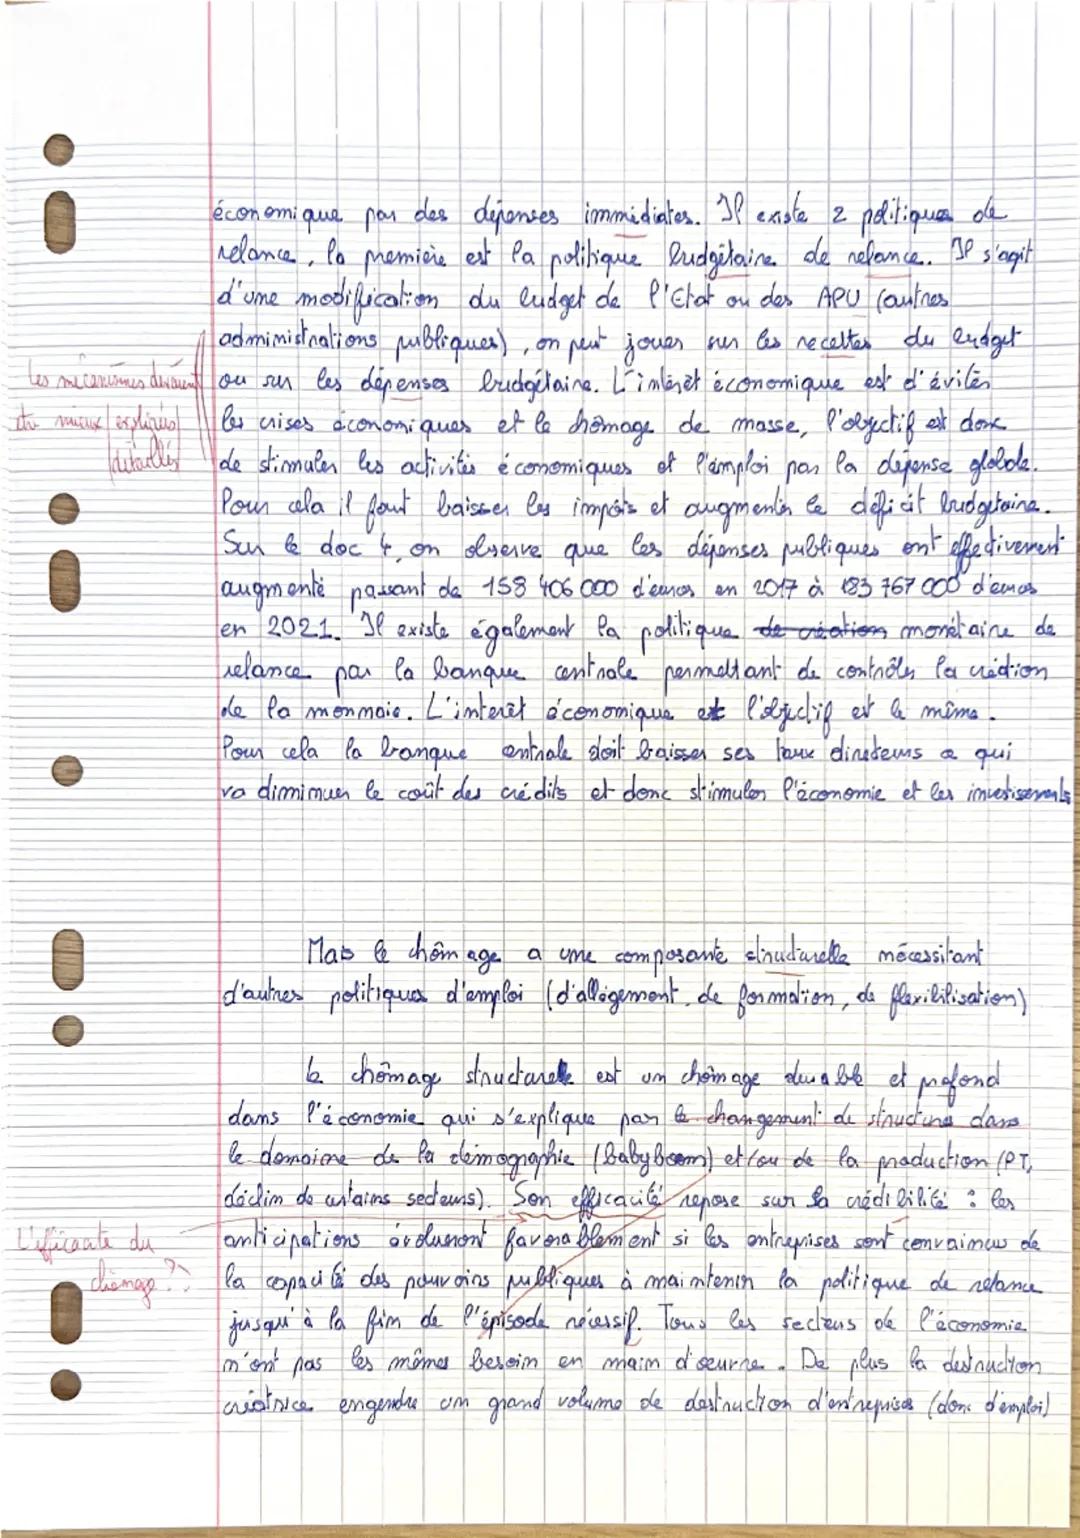 économique par des dépenses immédiates. Il existe 2 politiques de
relance, la première est la politique budgétaire de relance. Il s'agit
d'une modification du budget de l'Etat ou des APU (autres
administrations publiques), on peut jouer sur les recettes du budget
Les mécanismes devraient
être mieux expliqués/
/détaillés
ou sur les dépenses budgétaire. L'intérêt économique est d'éviter
les crises économiques et le chômage de masse, l'objectif est donc
de stimuler les activités économiques et l'emploi par la dépense globale.
Pour cela il faut baisser les impôts et augmenter le déficit budgetaire.
Sur le doc 4, on observe que les dépenses publiques ont effectivement
augmenté passant de 158 406 000 d'euros en 2017 à 183 767 000 d'euros
en 2021. Il existe également la politique de création monétaire de
relance par la banque centrale permettant de contrôler la création
de la monnaie. L'interêt économique et l'objectif est le même.
Pour cela la banque centrale doit baisser ses taux directeurs ce qui
va dimminuer le coût des crédits et donc stimuler l'économie et les investissements
Mais le chômage a une composante structurelle nécessitant
d'autres politiques d'emploi (d'allégement, de formation, de flexibilisation)
le chômage structurelle est un chômage durable et profond
dans l'économie qui s'explique par le changement de structure dans
le domaine de la démographie (babyboom) et/ou de la production (PT,
déclin de certains secteurs). Son efficacité repose sur la crédibilité : les
L'efficacité du
chômage ??
anticipations évolueront favorablement si les entreprises sont convaincus de
la capacité des pouvoirs publiques à maintenir la politique de relance
jusqu'à la fin de l'épisode récessif. Tous les secteurs de l'économie
n'ont pas les mêmes besoin en main d'oeuvre. De plus la destruction
créatrice engendre un grand volume de destruction d'entreprises (donc d'emploi)